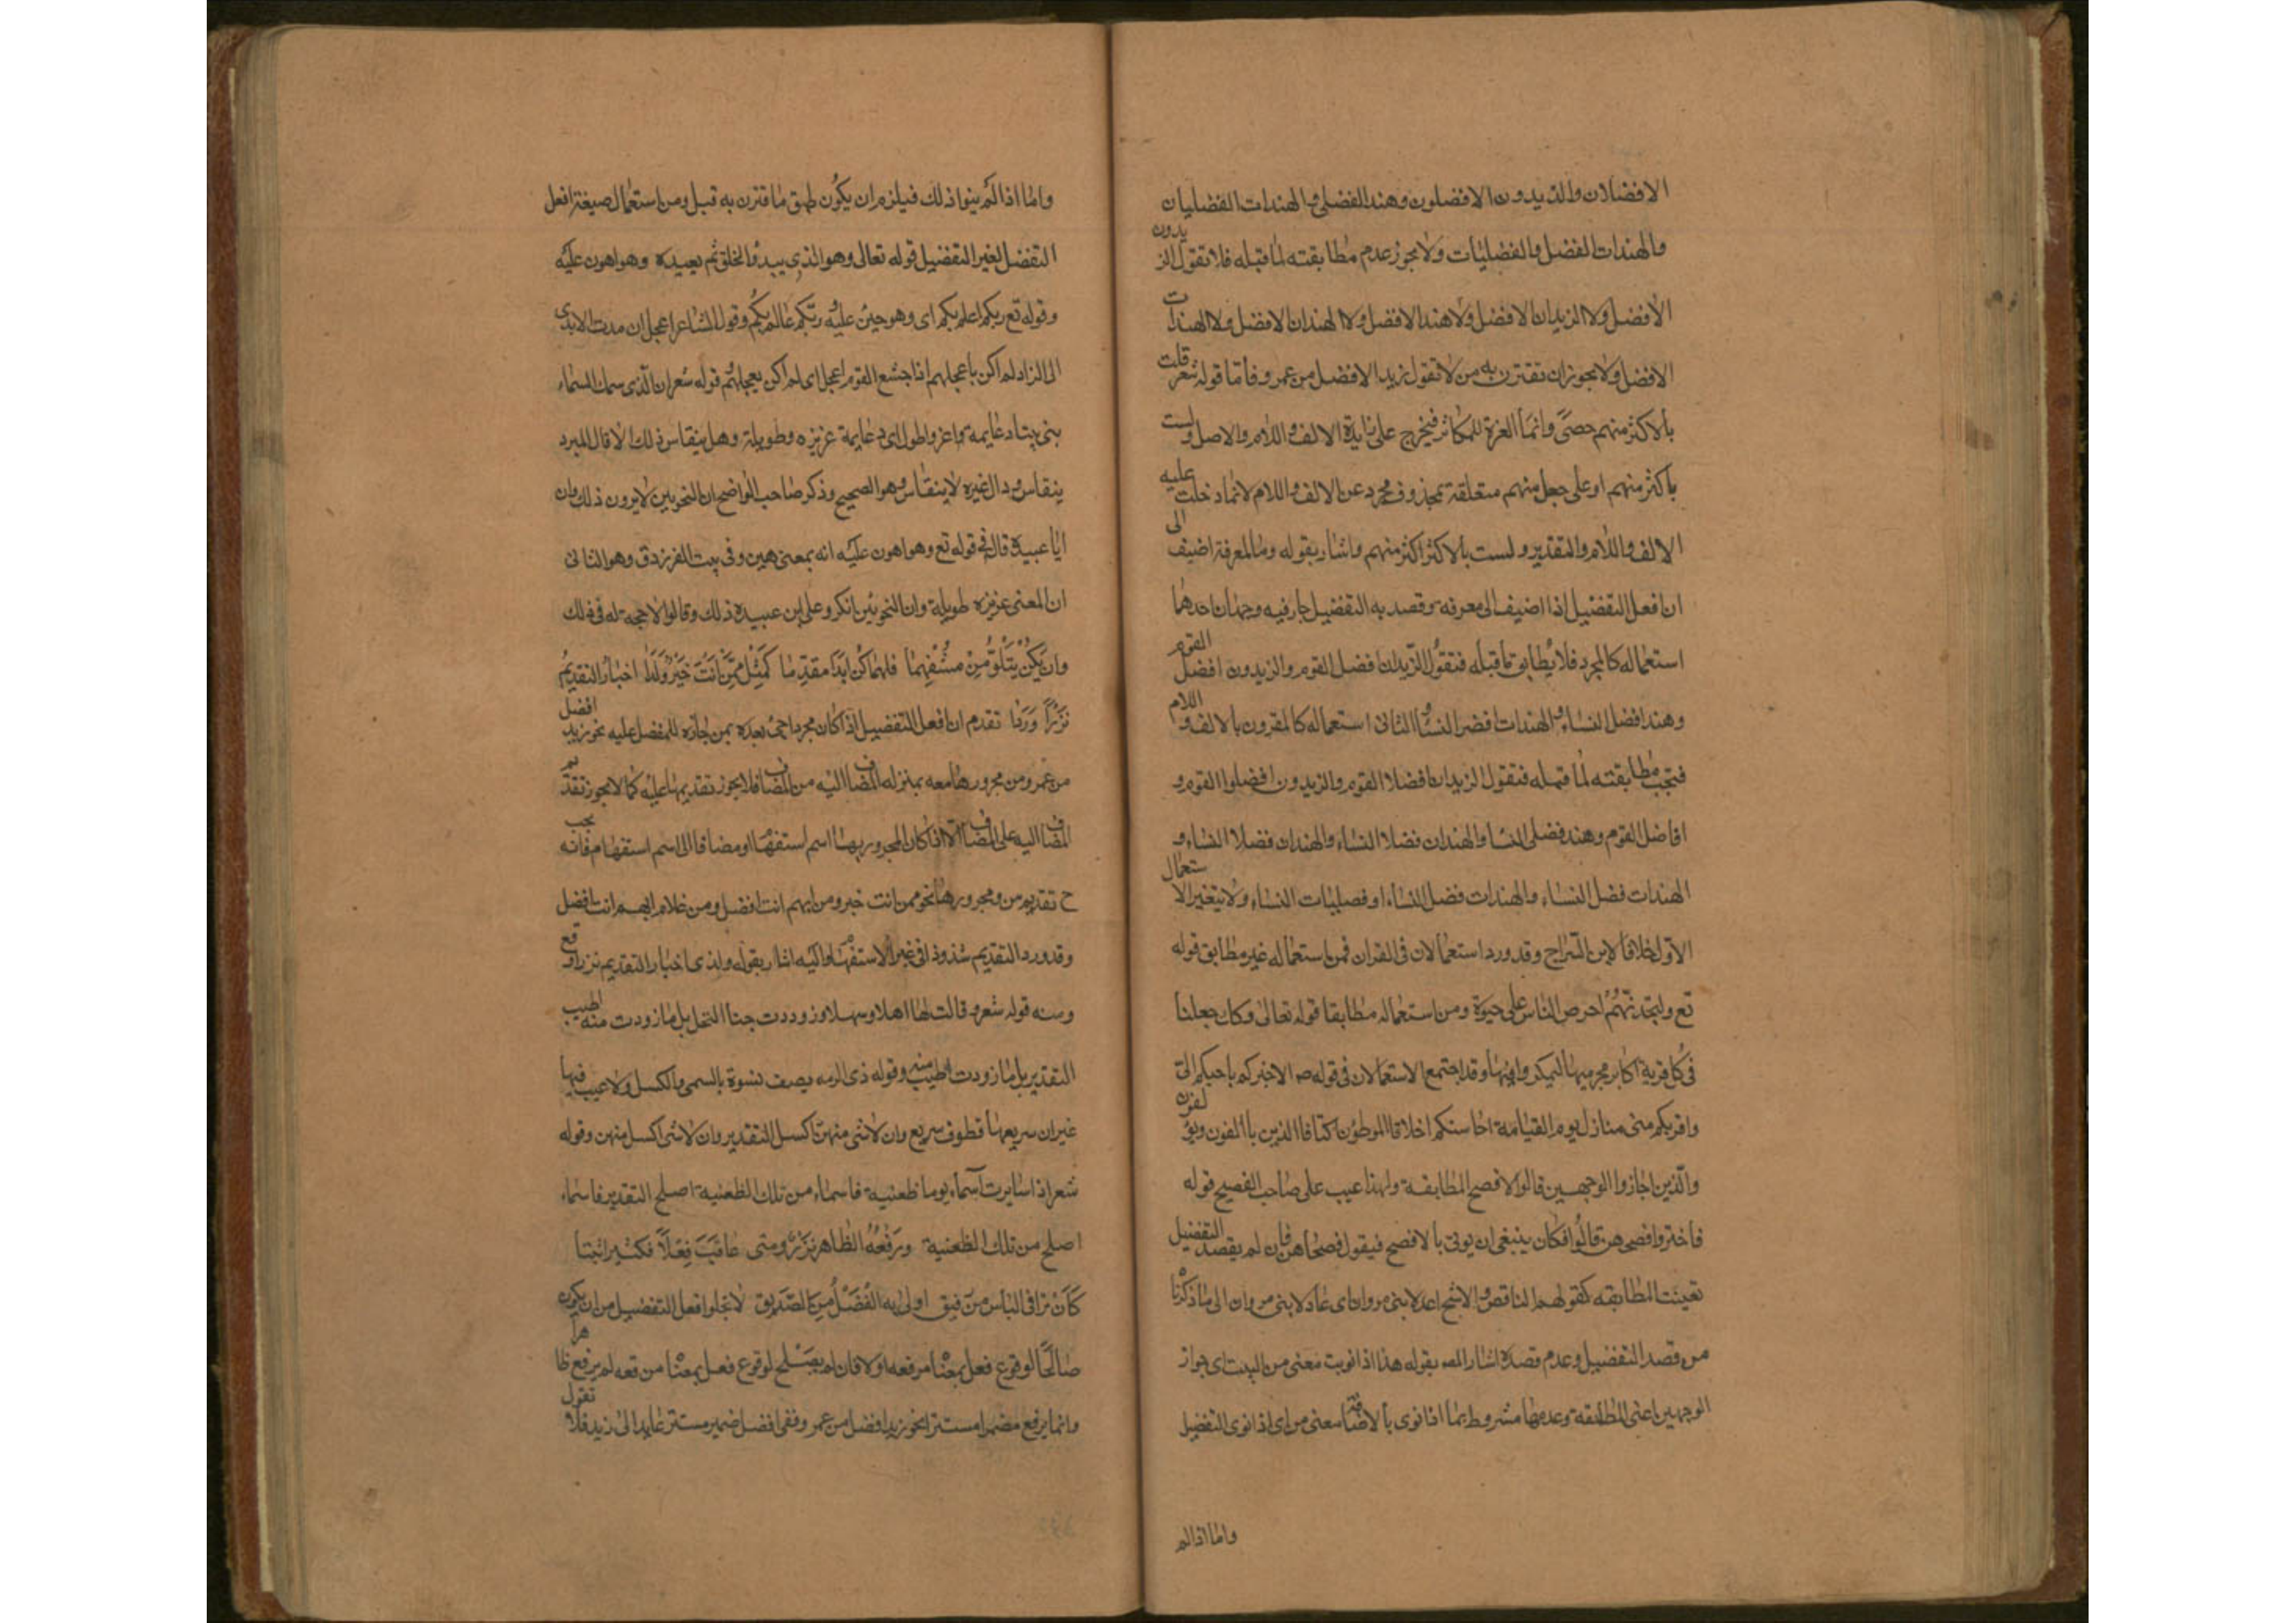 الافضلان والزيدون الافضلون وهند الفضلى والهندات الفضليان
والهندات الفضل والفضليات ولا يجوز عدم مطابقته لما قبله فلا تقول الزيدون
الافضل ولا الزيدان الافضل ولا هند الافضل ولا الهندان الافضل ولا الهندات
الافضل ولا يجوز ان تقترن به من لا تقول زيد الافضل من عمرو فأما قوله شعر قلت
بألاكثر منهم حصىً وانما العزة للمكاثر فيخرج على زيادة الالف واللام والاصل ولست
بأكثر منهم او على جعل منهم متعلقة بمحذوف مجرد عن الالف واللام لانما دخلت عليه
الالف واللام والتقدير ولست بألاكثر اكثر منهم واشار بقوله وما لمعرفة اضيف الى
ان افعل التفضيل اذا اضيف الى معرفه وقصد به التفضيل جاز فيه وجهان احدهما
استعماله كالمجرد فلا يُطابق ما قبله فتقول الزيدان افضل القوم والزيدون افضل القوم
وهند افضل النساء والهندات افضر النساء والثانى استعماله كالمقرون بالالف و اللام
فتجب مطابقته لما قبله فتقول الزيدان افضلا القوم والزيدون افضلوا القوم و
افاضل القوم وهند فضلى النسا والهندان فضلا النساء والهندان فضلا النساء و
الهندات فضل النساء والهندات فضل النساء او فصليات النساء ولا يتغير الا ستعمال
الاول خلافا لابن السراج وقد ورد استعمالان فى القران فمن استعماله غير مطابق قوله
تع ولتجدنهُم احرص الناس على حيوة ومن استعماله مطابقا قوله تعالى وكذلك جعلنا
فى كل قرية اكابر مجرميها ليمكروا فيها وقد اجتمع الاستعمالان فى قوله ص الا اخبركم باحبكم الىّ
واقربكم منى منازل يوم القيامة احاسنكم اخلاقا الموطؤن اكنافا الذين يألفون ويؤ لفون
والّذين اجازوا الوجهين قالوا لافصح المطابقة ولهذا عيب على صاحب الفصيح قوله
فاختر وافصحهن قالُوا فكان ينبغى ان يوتى بالافصح فيقول فصحاهن فان لم يقصد التفضيل
تعينت المطابقه كقولهم الناقص والاشج اعدلا بنى مروان اى عادلا بنى مروان الى ما ذكرنا
من قصد التفضيل وعدم قصده اشار المص بقوله هذا اذا نويت معنى من البيت اى جواز
الوجهين اعنى المطابقة وعدمها مشروط بما اذا نوى بالاضافة معنى من اى اذا نوى التفضيل
واما اذا لم
واما اذا لم ينوا ذلك فيلزم ان يكون طبق ما قترن به قبل ومن استعمال صيغة افعل
التفضل لغير التفضيل قوله تعالى وهو الذى يبدؤ الخلق ثم يعيده وهو اهون عليه
وقوله تع ربكم اعلم بكم اى وهو هين عليه ربكم عالم بكُم وقول الشاعر اعجل ان مدت الايدى
الى الزاد لم اكن باعجلهم اذا جشع القوم اعجل اى لم اكن بعجلهم قوله شعر ان الّذى سمك السماء
بنى بيتا دعايمه اعز واطول اى دعايمة عزيزه وطويلة وهل ينقاس ذلك الا قال المبرد
ينقاس ودال غيره لا ينقاس وهو الصحيح وذكر صاحب الواضح ان النحويين لا يرون ذلك وان
ابا عبيدة قال فى قوله تع وهو اهون عليه انه بمعنى هين وفى بيت الفرزدق وهو الثانى
ان المعنى عزيزه طويلة وان النحويين انكروا على ابن عبيده ذلك وقالوا لا حجة له فى ذلك
وان يكُنْ يتلو مِنْ مستفهما فلهما كن ابدا مقدّما كمثل ممّن انت خيرٌ ولدا اخبار التقديمُ
نزْراً وَرَدا تقدم ان افعل التفضيل اذا كان مجرداجئ بعده بمن جارّه للمفضل عليه نحو زيد افضل
من عمرو ومن مجرورها معه بمنزله المضاف اليه من المضاف فلا يجوز تقديمها عليه كما لا يجوز تقديم
المضاف اليه على المضاف الا اذا كان المجرور بها اسم استفهاما او مضافا الى اسم استفهام فانه يجب
ح تقديم من ومجرورها نحو ممن انت خير ومن ايهم انت افضل ومن غلام ايهم انت افضل
وقد ورد التقديم شذوذا فى غير الاستفهام واليه اشار بقوله ولدى اخبار التقديم نزرا وقع
ومنه قوله شعر وقالت لها اهلا وسهلا وزودت جنا النحل بل ما زودت منه اطيب
التقدير بل ما زودت اطيب منه وقوله ذى الرمه يصف نسوة بالسمى والكسل ولا عيب فيها
غير ان سريعها قطوف سريع وان لا شى منهن اكسل التقدير وان لا شى اكسل منهن وقوله
شعر اذا سايرت اسماء يوما ظعنية فاسماء من تلك الظعنية اصلح التقدير فاسماء
اصلح من تلك الظعنية ورَفْعُهُ الظاهر نزرٌ ومتى عاقَبَ فِعْلاً فكثيرا ثبتا
كَلَنْ ترا فى الناس من رفيق اولى به الفَضْلُ مِنَ الصديق لا تخلوا فعل التفضيل من ان يكون
صالحًا لوقوع فعل بمعناه موقعه او لا فان لم يصلح لوقوع فعل بمعنا من قعه لم يرفع ظا هرا
وانما يرفع مضمرا مستترا نحو زيد افضل من عمر وففى افضل ضمير مستتر عايد الى زيد فلا تقول